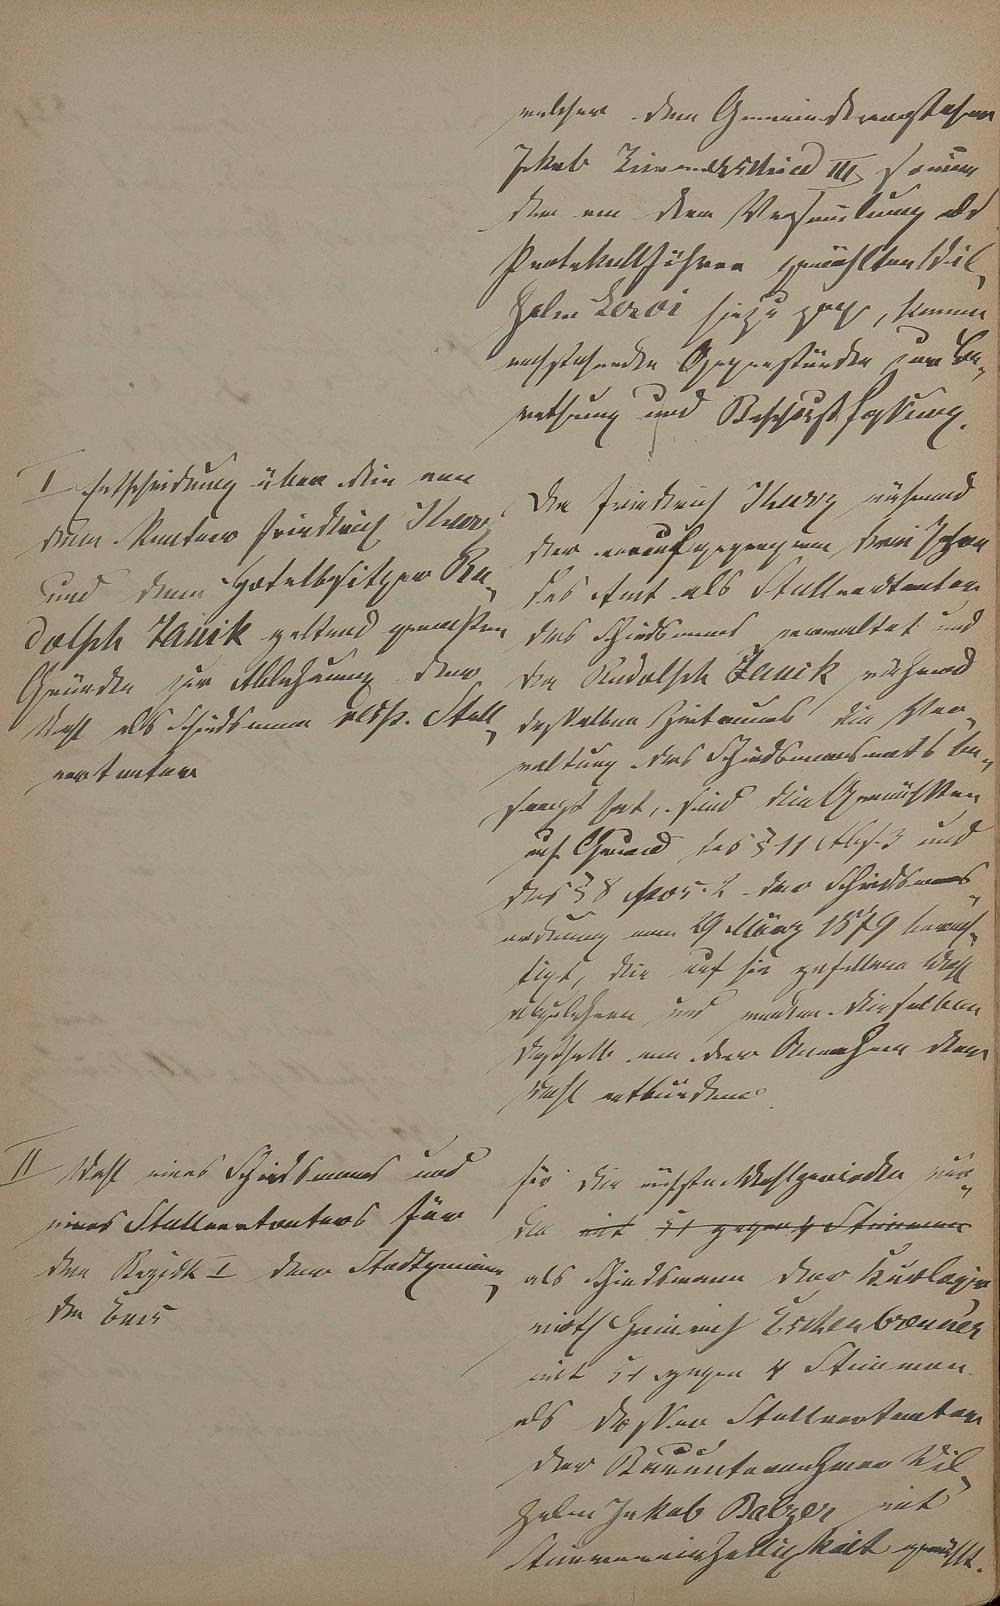 welcher dem Gemeindevorsteher
Jakob III sowie
den von der Versammlung als
Protokollführer gewählten Wil-
helm hinzuzog, kamen
nachstehende Gegenstände zur Be-
rathung und Beschlußfassung.
I Entscheidung über die von
dem Rentner Friedrich
und dem Hotelbesitzer Ru-
dolph Janik geltend gemachten
Gründe zur Ablehnung der
Wahl als Schiedsmann resp. Stell-
vertreter
Da Friedrich während
der vorausgegangenen drei Jahre
das Amt als Stellvertreter
des Schiedsmanns verwaltet und
da Rudolph Janik während
desselben Zeitraums die Ver-
waltung des Schiedsmannsamts be-
sorgt hat, sind die Gewählten
auf Grund des § 11 Abs. 3 und
des § 8 2 der Schiedsmanns-
ordnung vom 29 März 1879 berech-
tigt, die auf sie gefallene Wahl
abzulehnen und werden dieselben
deßhalb von der Annahme der
Wahl entbunden.
II Wahl eines Schiedsmanns und
eines Stellvertreters für
den Bezirk I der Stadtgemein-
de Ems
für die nächste Wahlperiode wur-
de mit 51 gegen 4 Stimmen
als Schiedsmann der Kurlogir-
wirth Heinrich Eschenbrenner
mit 51 gegen 4 Stimmen
als dessen Stellvertreter
der Bauunternehmer Wil-
helm Jakob Balzer mit
Stimmeneinhelligkeit gewählt.